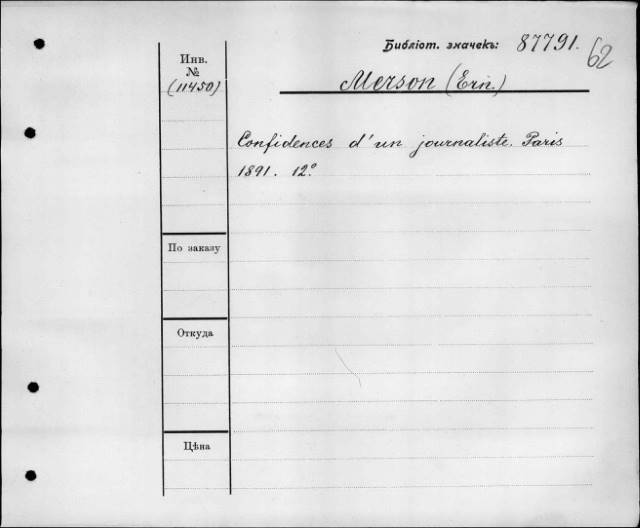 Библіот. значекъ: 87791.
62
Инв.
№
(11450)
Merson (Ern.)
Confidences d'un journaliste. Paris
1891. 12°
По заказу
Откуда
Цѣна